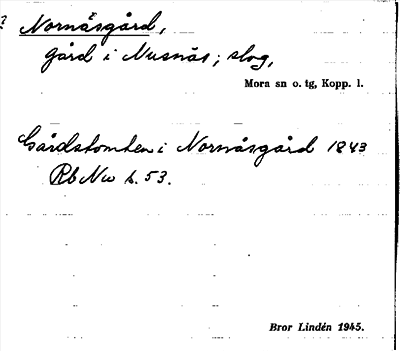 ? Nornäsgård,
gård i Nusnäs; slog,
Mora sn o. tg, Kopp. l.
Gårdstomten i Nornäsgård 1843
Rb Nw s. 53.
Bror Lindén 1945.